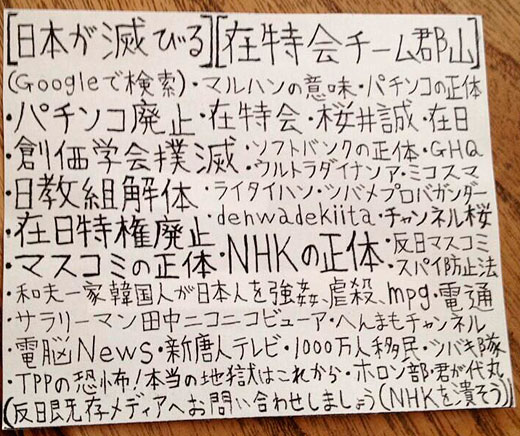 [日本が滅びる][在特会チーム郡山]
(Googleで検索)・マルハンの意味・パチンコの正体
・パチンコ廃止・在特会・桜井誠・在日
・創価学会撲滅・ソフトバンクの正体・GHQ
・ウルトラダイナソア・ミコスマ
・日教組解体・ライタイハン・ツバメプロパガンダー
・denwadekiita・チャンネル桜
・在日特権廃止
・マスコミの正体・NHKの正体・反日マスコミ
・スパイ防止法
・和夫一家韓国人が日本人を強姦、虐殺、mpg・電通
・サラリーマン田中ニコニコビューア・へんまもチャンネル
・電脳News・新唐人テレビ・1000万人移民・ツバキ隊
・TPPの恐怖!本当の地獄はこれから・ホロン部・君が代丸
(反日既存メディアへお問い合わせしましょう(NHKを潰そう))